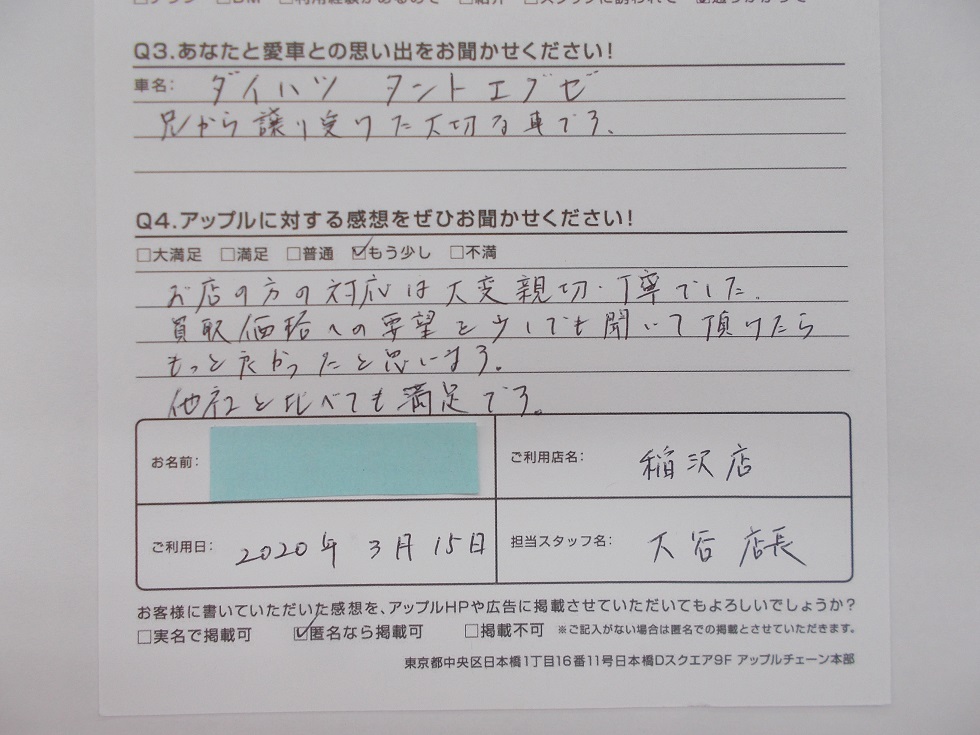 □DM □利用経験があるので □紹介 □スタッフに誘われて ☑通りがかって
Q3.あなたと愛車との思い出をお聞かせください!
車名: ダイハツ タントエグゼ
兄から譲り受けた大切な車です。
Q4.アップルに対する感想をぜひお聞かせください!
□大満足 □満足 □普通 ☑もう少し □不満
お店の方の対応は大変親切・丁寧でした。
買取価格への要望を少しでも聞いて頂けたら
もっと良かったと思います。
他社と比べても満足です。
お名前:
ご利用店名: 稲沢店
ご利用日: 2020年 3月 15日
担当スタッフ名: 大谷 店長
お客様に書いていただいた感想を、アップルHPや広告に掲載させていただいてもよろしいでしょうか?
□実名で掲載可 ☑匿名なら掲載可 □掲載不可 ※ご記入がない場合は匿名での掲載とさせていただきます。
東京都中央区日本橋1丁目16番11号日本橋Dスクエア9F アップルチェーン本部